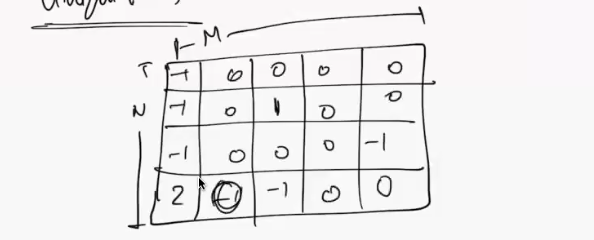 M
T -1 0 0 0 0
N -1 0 1 0 0
-1 0 0 0 -1
2 -1 -1 0 0